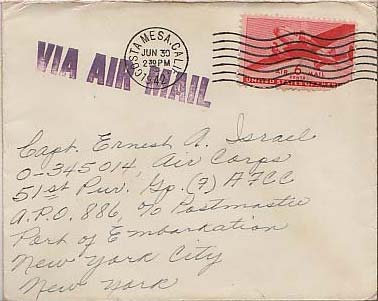 COSTA MESA, CALIF.
JUN 30
2:30 PM
VIA AIR MAIL
AIR MAIL
6
CENTS
UNITED STATES OF
Capt. Ernest A. Israel
O-345014, Air Corps
51st Pur. Gp. (7) AFCC
A.P.O. 886, c/o Postmaster
Port of Embarkation
New York City
New York